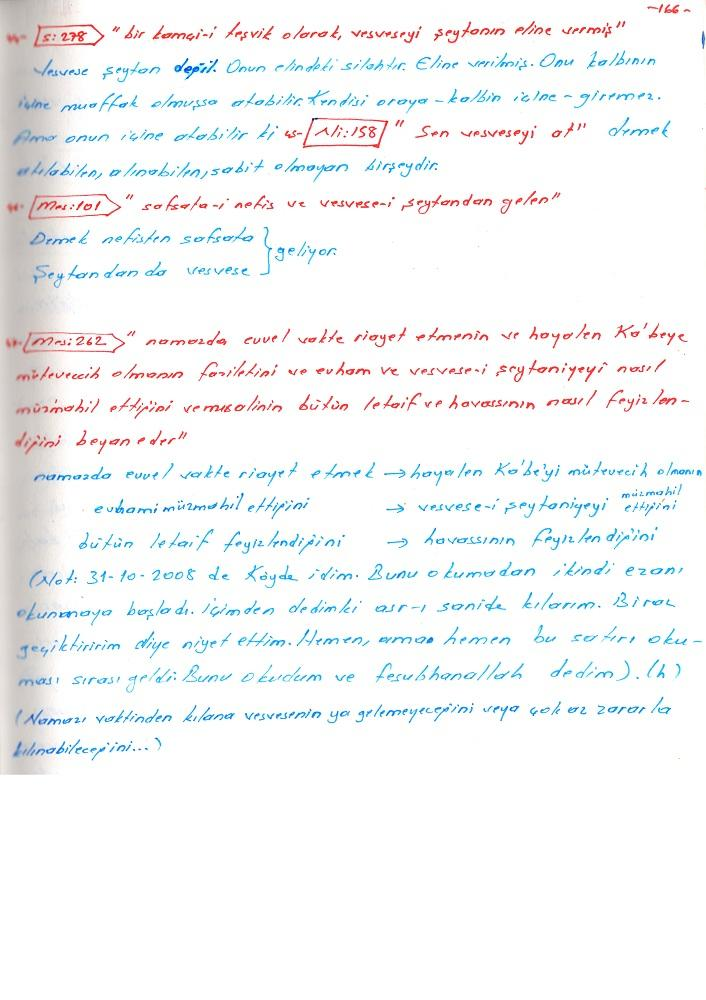 -166-
S: 278 "bir kamçı-i teşvik olarak, vesveseyi şeytanın eline vermiş"
Vesvese şeytan değil. Onun elindeki silahtır. Eline verilmiş. Onu kalbinin
içine muaffak olmuşsa atabilir. Kendisi oraya - kalbin içine - giremez.
Ama onun içine atabilir ki Ali: 158 "Sen vesveseyi at" demek
atılabilen, alınabilen, sabit olmayan birşeydir.
Mes: 101 "safsata-i nefis ve vesvese-i şeytandan gelen"
Demek nefisten safsata
Şeytandan da vesvese } geliyor.
Mes: 262 "namazda evvel vakte riayet etmenin ve hayalen Kâ'beye
müteveccih olmanın faziletini ve evham ve vesvese-i şeytaniyeyi nasıl
müzmahil ettiğini ve misalinin bütün letaif ve havassının nasıl feyizlen-
diğini beyan eder"
namazda evvel vakte riayet etmek → hayalen Kâ'be'yi mütevecih olmanın
evhami müzmahil ettiğini → vesvese-i şeytaniyeyi müzmahil ettiğini
bütün letaif feyizlendiğini → havassının feyizlendiğini
(Not: 31-10-2008 de Köyde idim. Bunu okumadan ikindi ezanı
okunmaya başladı. içimden dedimki asr-ı sanide kılarım. Biraz
geçiktiririm diye niyet ettim. Hemen, ama hemen bu satırı oku-
ması sırası geldi. Bunu okudum ve fesubhanallah dedim). (h)
(Namazı vaktinden kılana vesvesenin ya gelemeyeceğini veya çok az zararla
kılınabileceğini...)